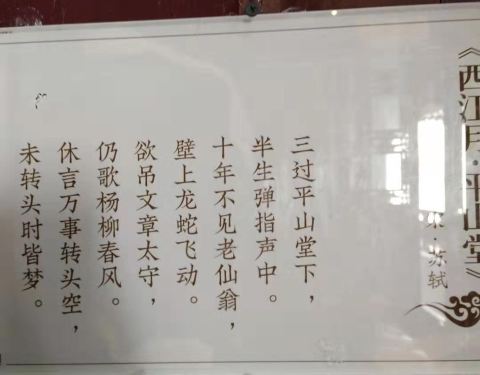 《西江月·平山堂》
宋·苏轼
三过平山堂下，
半生弹指声中。
十年不见老仙翁，
壁上龙蛇飞动。
欲吊文章太守，
仍歌杨柳春风。
休言万事转头空，
未转头时皆梦。